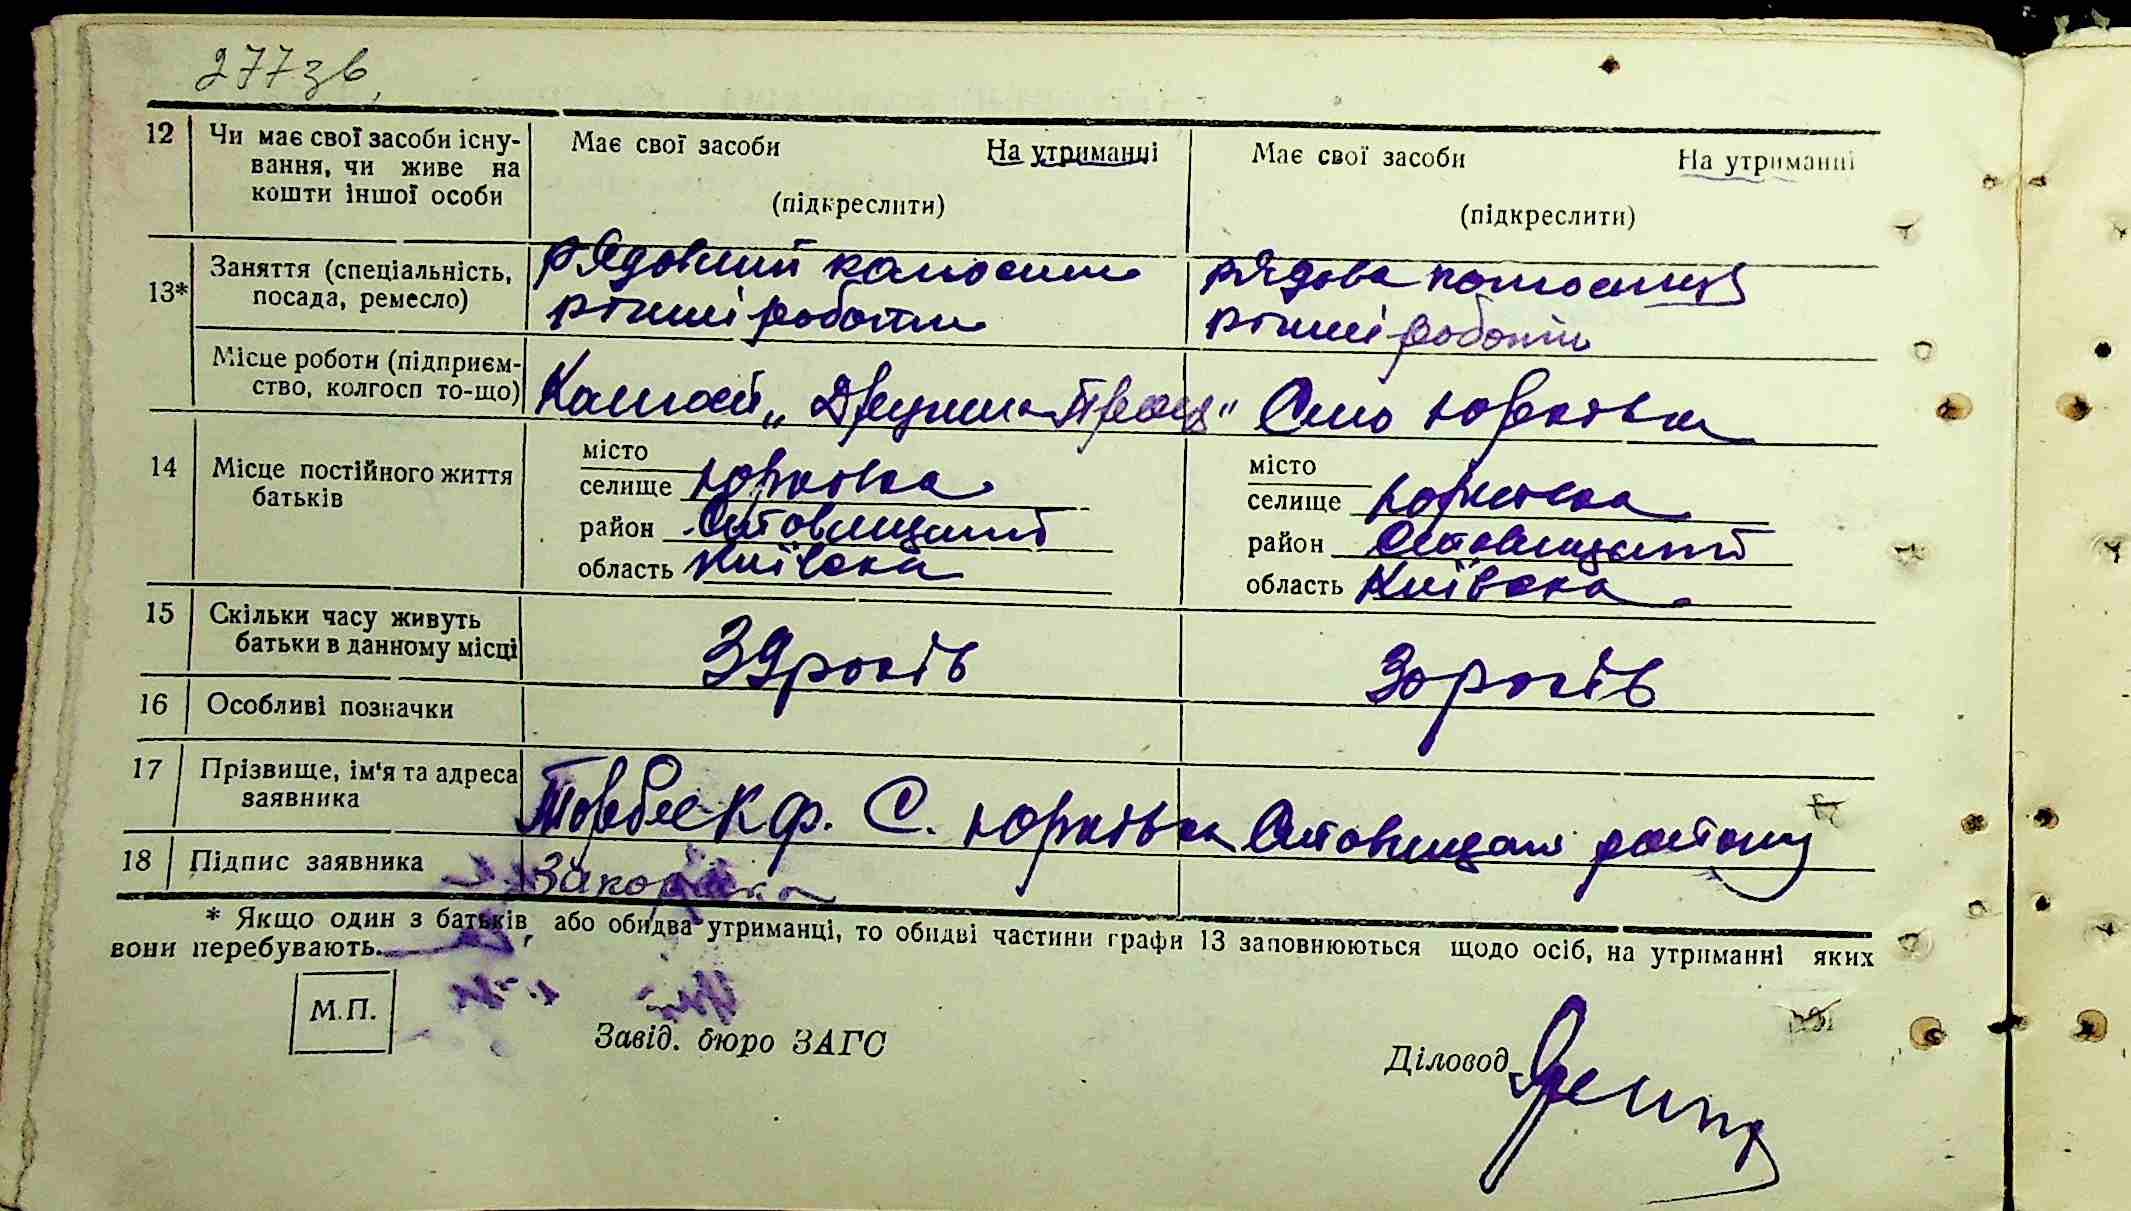 277зв.
12 Чи має свої засоби існу-
вання, чи живе на
кошти іншої особи
Має свої засоби На утриманні
(підкреслити)
Має свої засоби На утриманні
(підкреслити)
13* Заняття (спеціальність,
посада, ремесло)
рядовий
різні роботи
рядова
різні роботи
Місце роботи (підприєм-
ство, колгосп то-що)
Колгосп Село Юрківка
14 Місце постійного життя
батьків
місто
селище Юрківка
район Ставищанський
область Київска
місто
селище Юрківка
район Ставищанський
область Київска
15 Скільки часу живуть
батьки в данному місці
39 років
30 років
16 Особливі позначки
17 Прізвище, ім'я та адреса
заявника
Ф. С. Юрківка району
18 Підпис заявника
* Якщо один з батьків, або обидва утриманці, то обидві частини графи 13 заповнюються щодо осіб, на утриманні яких
вони перебувають.
М.П.
Завід. бюро ЗАГС
Діловод